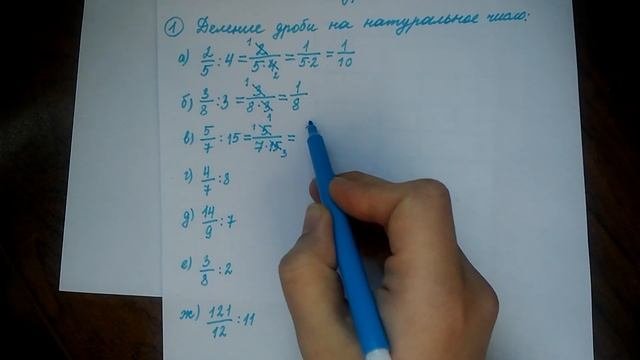 ① Деление дроби на натуральное число:
а) 2/5 : 4 = 2/5·4 = 1/5·2 = 1/10
б) 3/8 : 3 = 3/8·3 = 1/8
в) 5/7 : 15 = 5/7·15 =
г) 4/7 : 8
д) 14/9 : 7
е) 3/8 : 2
ж) 121/12 : 11